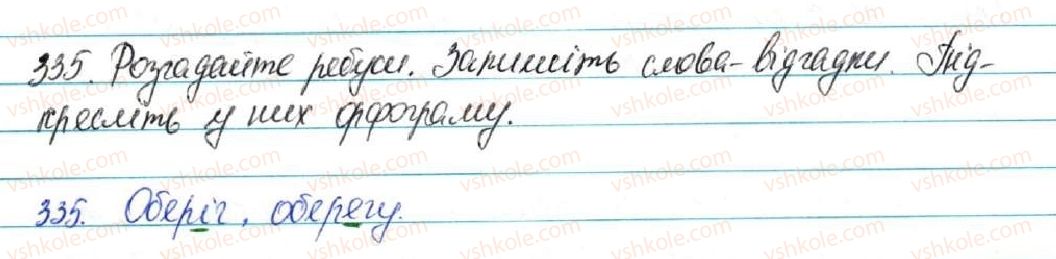 335. Розгадайте ребуси. Запишіть слова-відгадки. Під-
кресліть у них орфограму.
335. Оберіг, оберегу.
vshkole.com